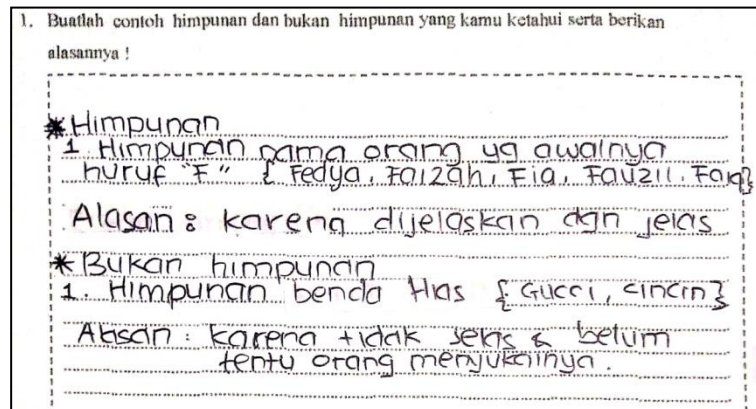 1. Buatlah contoh himpunan dan bukan himpunan yang kamu ketahui serta berikan
alasannya !
*Himpunan
1. Himpunan nama orang yg awalnya
huruf "F" { Fedya, Faizah, Fia, Fauzii, Faiq}
Alasan : karena dijelaskan dgn jelas
*Bukan himpunan
1. Himpunan benda Hias { Gucci, cincin}
Alasan : karena tidak jelas & belum
tentu orang menyukainya.